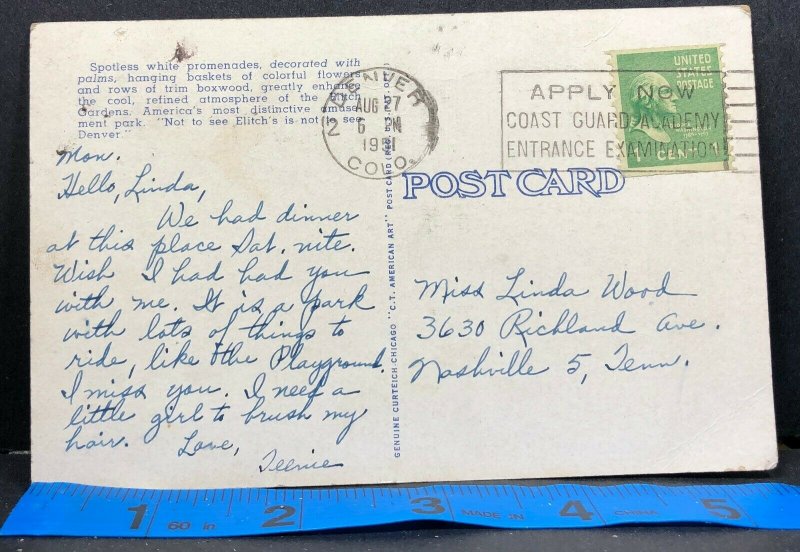 Spotless white promenades, decorated with
palms, hanging baskets of colorful flowers
and rows of trim boxwood, greatly enhance
the cool, refined atmosphere of the Elitch
Gardens. America's most distinctive amuse-
ment park. "Not to see Elitch's is not to see
Denver."
Mon.
Hello, Linda,
We had dinner
at this place Sat. nite.
Wish I had had you
with me. It is a park
with lots of things to
ride, like the Playground.
I miss you. I need a
little girl to brush my
hair. Love,
DENVER
AUG 27
6 PM
1951
COLO.
2
APPLY NOW
COAST GUARD ACADEMY
ENTRANCE EXAMINATION
UNITED
STATES
POSTAGE
1 CENT
POST CARD
GENUINE CURTEICH-CHICAGO "C.T. AMERICAN ART" POST CARD (REG. U.S. PAT. OFF.)
Miss Linda Wood
3630 Richland Ave.
Nashville 5, Tenn.
1 2 3 4 5
60 in MADE IN CHINA